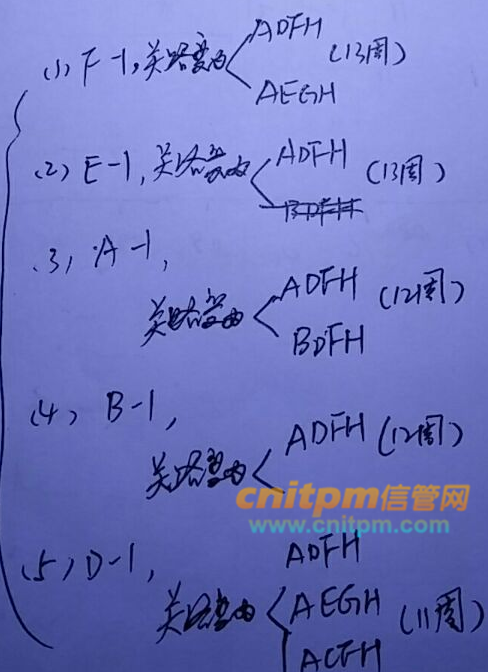 (1) F-1, 关路变为
ADFH
AEGH
(13周)
(2) E-1, 关路变为
ADFH
(13周)
(3) A-1,
关路变为
ADFH
BDFH
(12周)
(4) B-1,
关路变为
ADFH (12周)
cnitpm信管网
www.cnitpm.com
(5) D-1,
关路变为
ADFH
AEGH
ACFH
(11周)